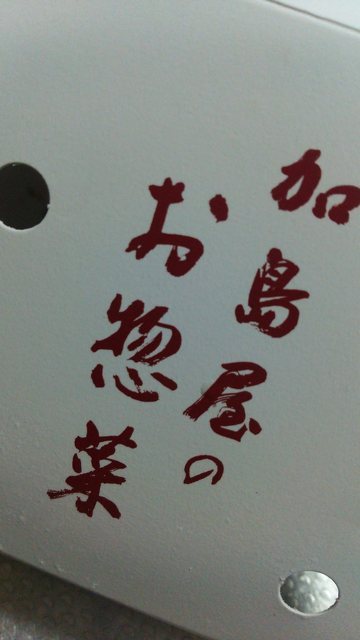 加島屋の
お惣菜